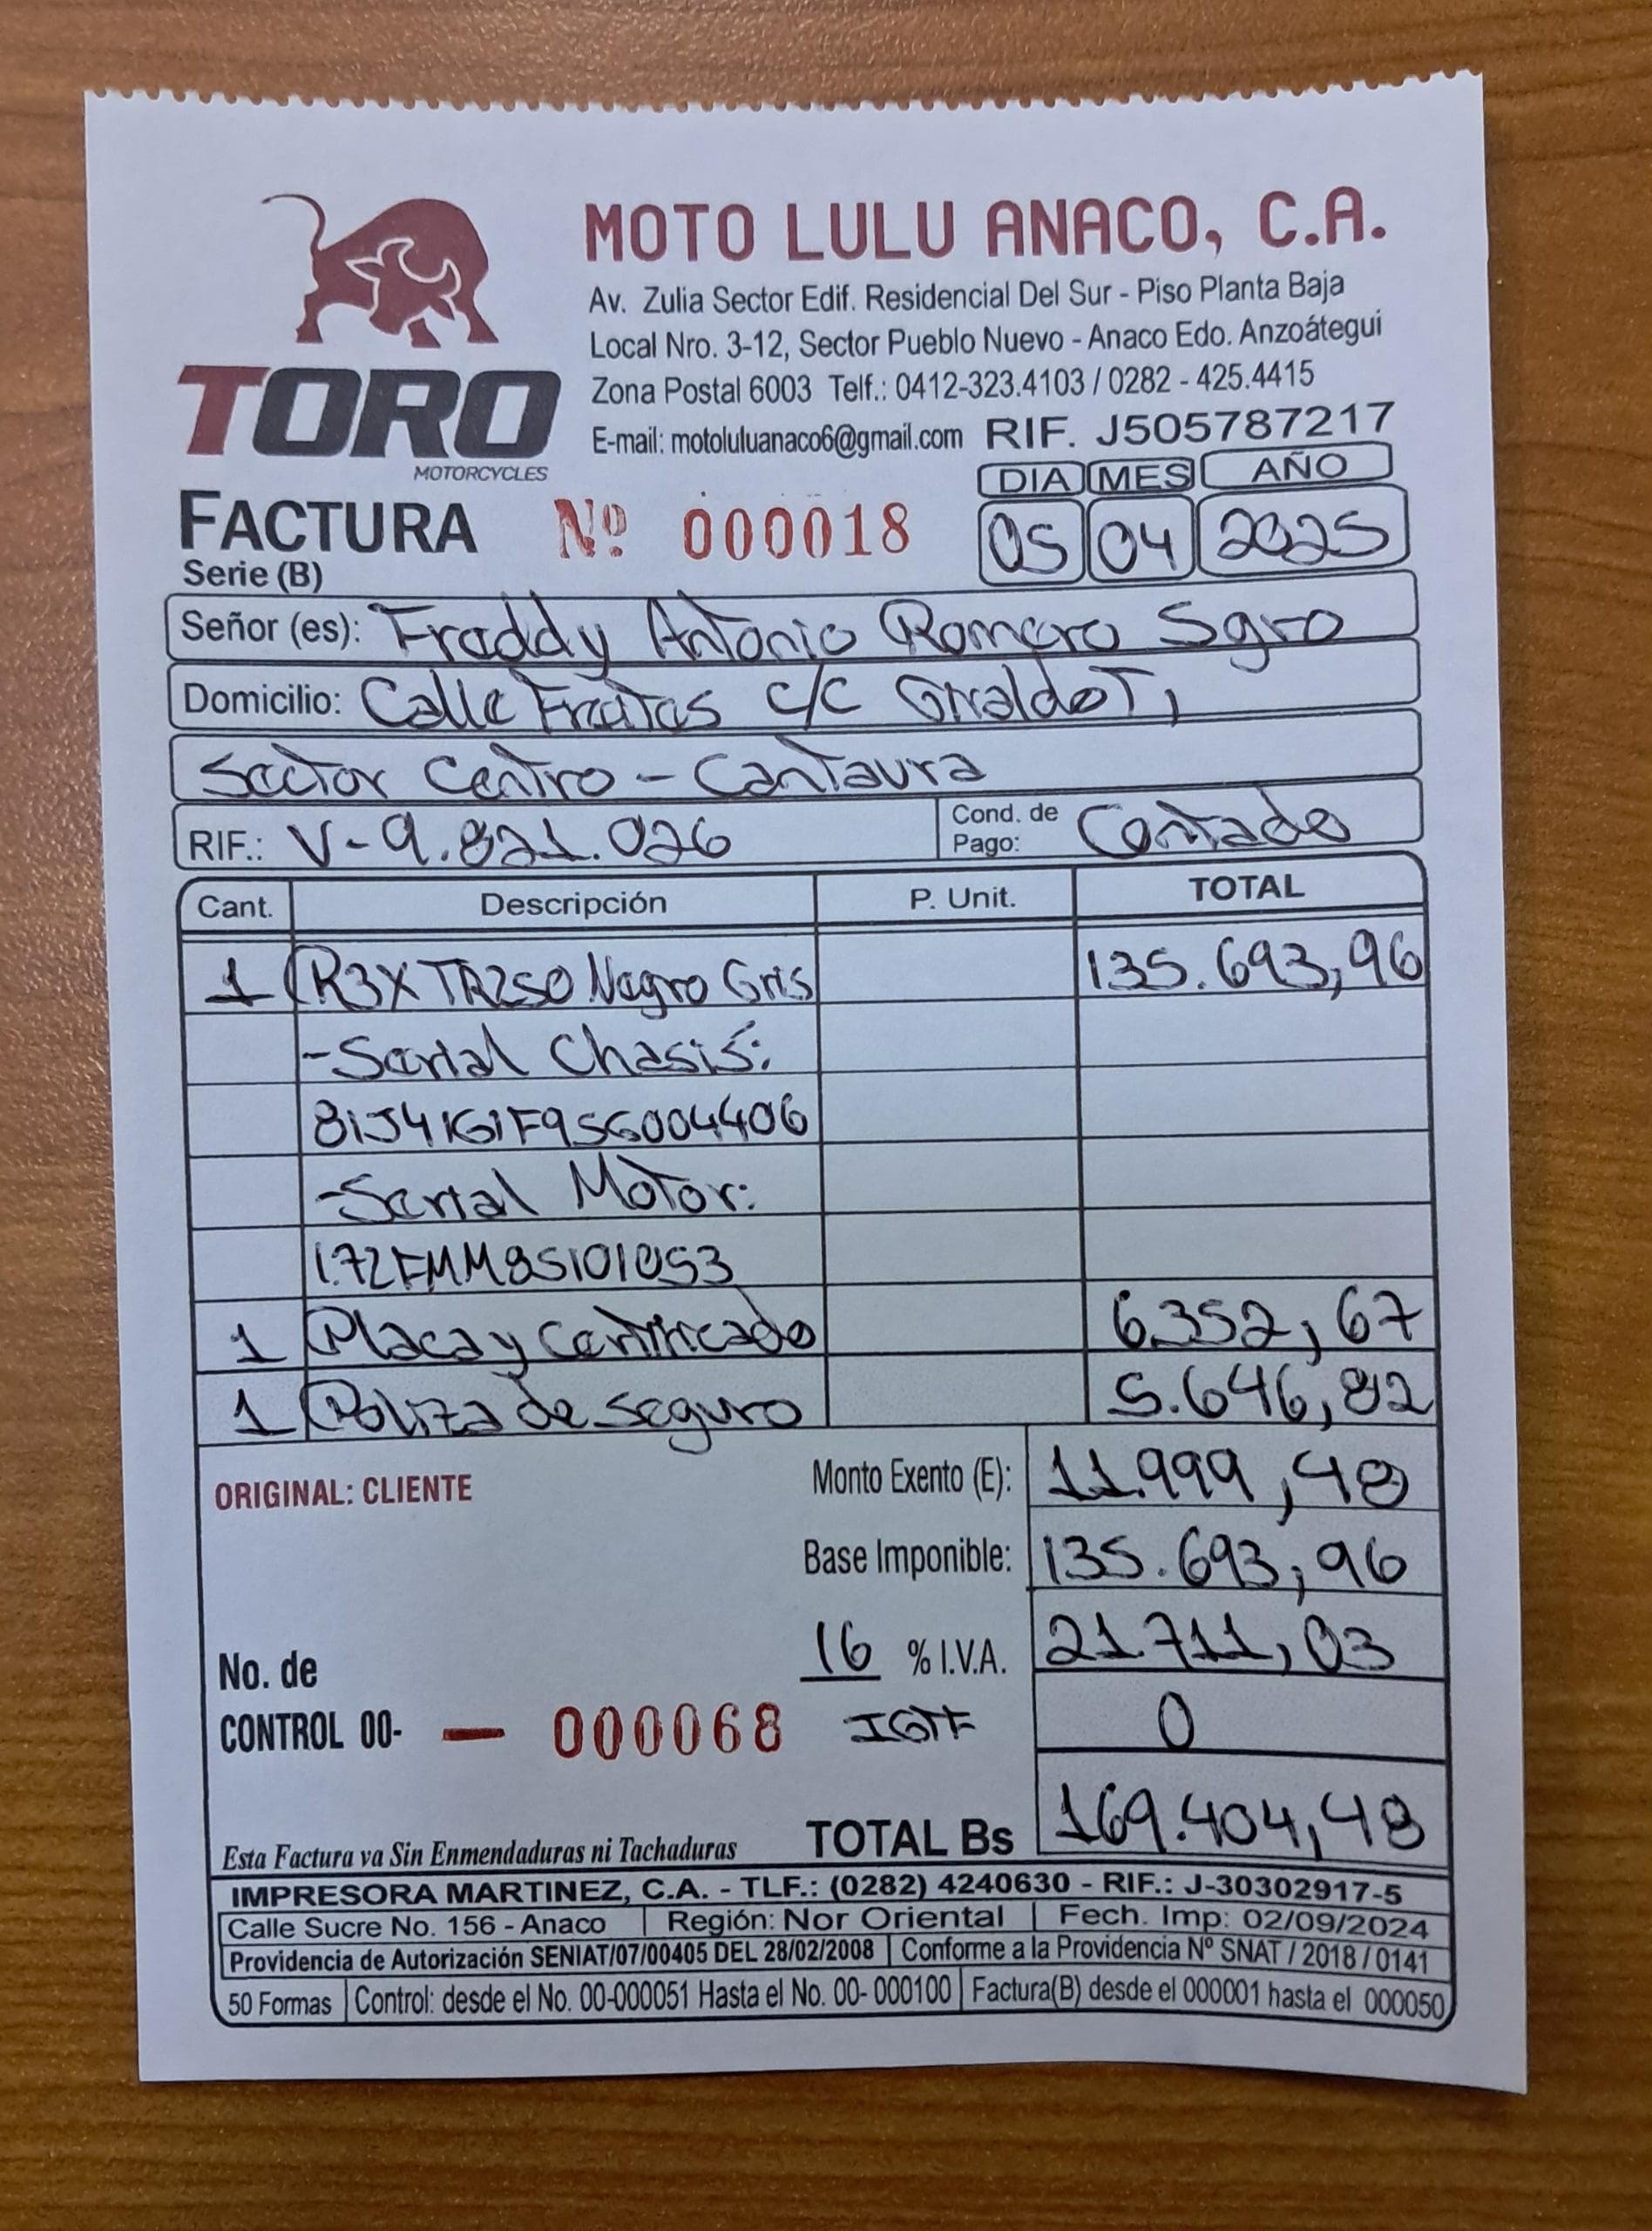 MOTO LULU ANACO, C.A.
Av. Zulia Sector Edif. Residencial Del Sur - Piso Planta Baja
Local Nro. 3-12, Sector Pueblo Nuevo - Anaco Edo. Anzoátegui
Zona Postal 6003 Telf.: 0412-323.4103 / 0282 - 425.4415
E-mail: motoluluanaco6@gmail.com RIF. J505787217
TORO
MOTORCYCLES
DIA MES AÑO
FACTURA Nº 000018 05 04 2025
Serie (B)
Señor (es): Freddy Antonio Romero Sgro
Domicilio: Calle Freites c/c Giraldot,
Sector Centro - Cantaura
RIF.: V-9.821.026 Cond. de Pago: Contado
Cant. Descripción P. Unit. TOTAL
1 R3X TR250 Negro Gris 135.693,96
-Serial Chasis:
81J41G1F9SG004406
-Serial Motor:
172FMM8S101053
1 Placa y Certificado 6352,67
1 Poliza de seguro 5.646,82
ORIGINAL: CLIENTE
Monto Exento (E): 11.999,48
Base Imponible: 135.693,96
16 % I.V.A. 21.711,03
No. de
CONTROL 00- — 000068
IGTF 0
TOTAL Bs 169.404,48
Esta Factura va Sin Enmendaduras ni Tachaduras
IMPRESORA MARTINEZ, C.A. - TLF.: (0282) 4240630 - RIF.: J-30302917-5
Calle Sucre No. 156 - Anaco Región: Nor Oriental Fech. Imp: 02/09/2024
Providencia de Autorización SENIAT/07/00405 DEL 28/02/2008 Conforme a la Providencia Nº SNAT / 2018 / 0141
50 Formas Control: desde el No. 00-000051 Hasta el No. 00- 000100 Factura(B) desde el 000001 hasta el 000050